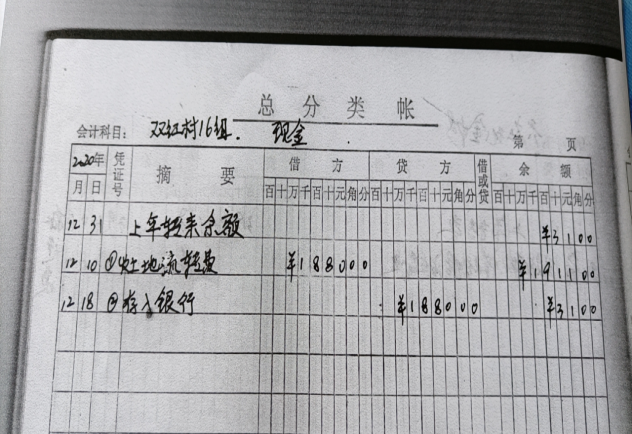 总分类帐
会计科目: 双红村16组. 现金 第 页
2020年 凭证号 摘要 借方 贷方 借或贷 余额
月 日 百十万千百十元角分 百十万千百十元角分 百十万千百十元角分
12 31 上年转来余额 ¥3100
12 10 土地流转费 ¥188000 ¥191100
12 18 存入银行 ¥188000 ¥3100